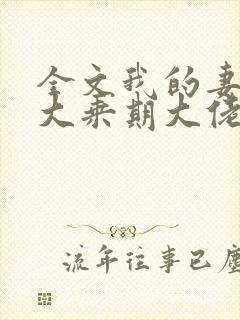 全文我的妻
大乘期大佬
流年往事已尘